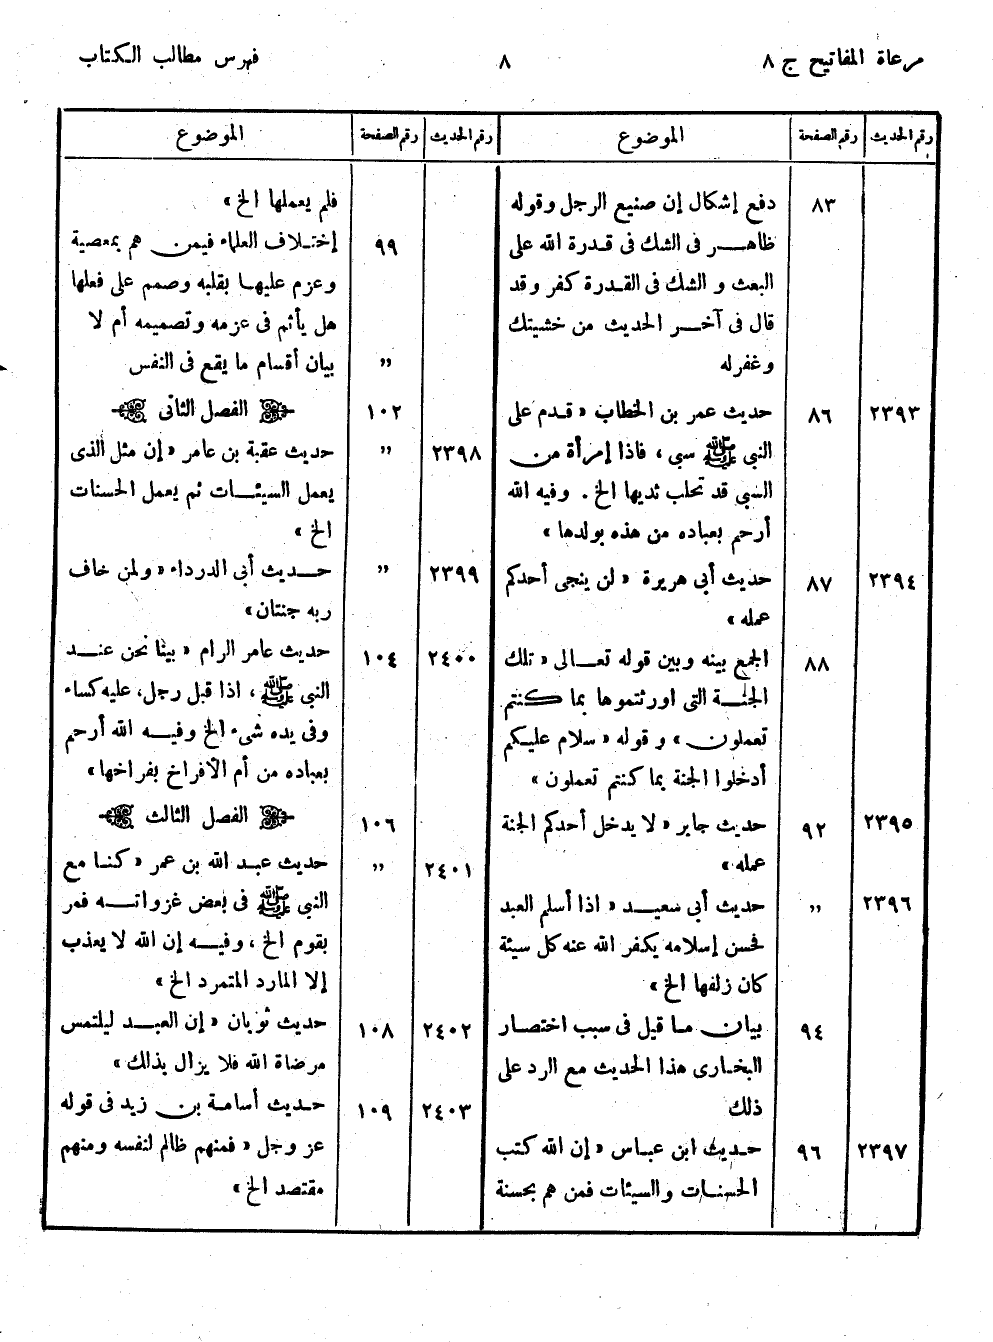 مرعاة المفاتيح ج ٨
٨
فهرس مطالب الكتاب
رقم الحديث رقم الصفحة الموضوع
٨٣ دفع إشكال إن صنيع الرجل وقوله
ظاهر فى الشك فى قدرة الله على
البعث و الشك فى القدرة كفر وقد
قال فى آخر الحديث من خشيتك
وغفرله
٢٣٩٣ ٨٦ حديث عمر بن الخطاب « قدم على
النبى ﷺ سبى ، فاذا إمرأة من
السبى قد تحلب ثديها الخ . وفيه الله
أرحم بعباده من هذه بولدها »
٢٣٩٤ ٨٧ حديث أبى هريرة « لن ينجى أحدكم
عمله »
٨٨ الجمع بينه وبين قوله تعالى « تلك
الجنة التى اورثتموها بما كنتم
تعملون » و قوله « سلام عليكم
أدخلوا الجنة بما كنتم تعملون »
٢٣٩٥ ٩٢ حديث جابر « لا يدخل أحدكم الجنة
عمله »
٢٣٩٦ ,, حديث أبى سعيد « اذا أسلم العبد
فحسن إسلامه يكفر الله عنه كل سيئة
كان زلفها الخ »
٩٤ بيان ما قيل فى سبب اختصار
البخارى هذا الحديث مع الرد على
ذلك
٢٣٩٧ ٩٦ حديث ابن عباس « إن الله كتب
الحسنات والسيئات فمن هم بحسنة
رقم الحديث رقم الصفحة الموضوع
فلم يعملها الخ »
٩٩ إختلاف العلماء فيمن هم بمعصية
وعزم عليها بقلبه وصمم على فعلها
هل يأثم فى عزمه وتصميمه أم لا
,, بيان أقسام ما يقع فى النفس
١٠٢ الفصل الثانى
٢٣٩٨ ,, حديث عقبة بن عامر « إن مثل الذى
يعمل السيئات ثم يعمل الحسنات
الخ »
٢٣٩٩ ,, حديث أبى الدرداء « ولمن خاف
ربه جنتان »
٢٤٠٠ ١٠٤ حديث عامر الرام « بينا نحن عند
النبى ﷺ ، اذا قبل رجل، عليه كساء
وفى يده شىء الخ وفيه الله أرحم
بعباده من أم الأفراخ بفراخها »
١٠٦ الفصل الثالث
٢٤٠١ ,, حديث عبد الله بن عمر « كنا مع
النبى ﷺ فى بعض غزواته فمر
بقوم الخ ، وفيه إن الله لا يعذب
إلا المارد المتمرد الخ »
٢٤٠٢ ١٠٨ حديث ثوبان « إن العبد ليلتمس
مرضاة الله فلا يزال بذلك »
٢٤٠٣ ١٠٩ حديث أسامة بن زيد فى قوله
عز وجل « فمنهم ظالم لنفسه ومنهم
مقتصد الخ »